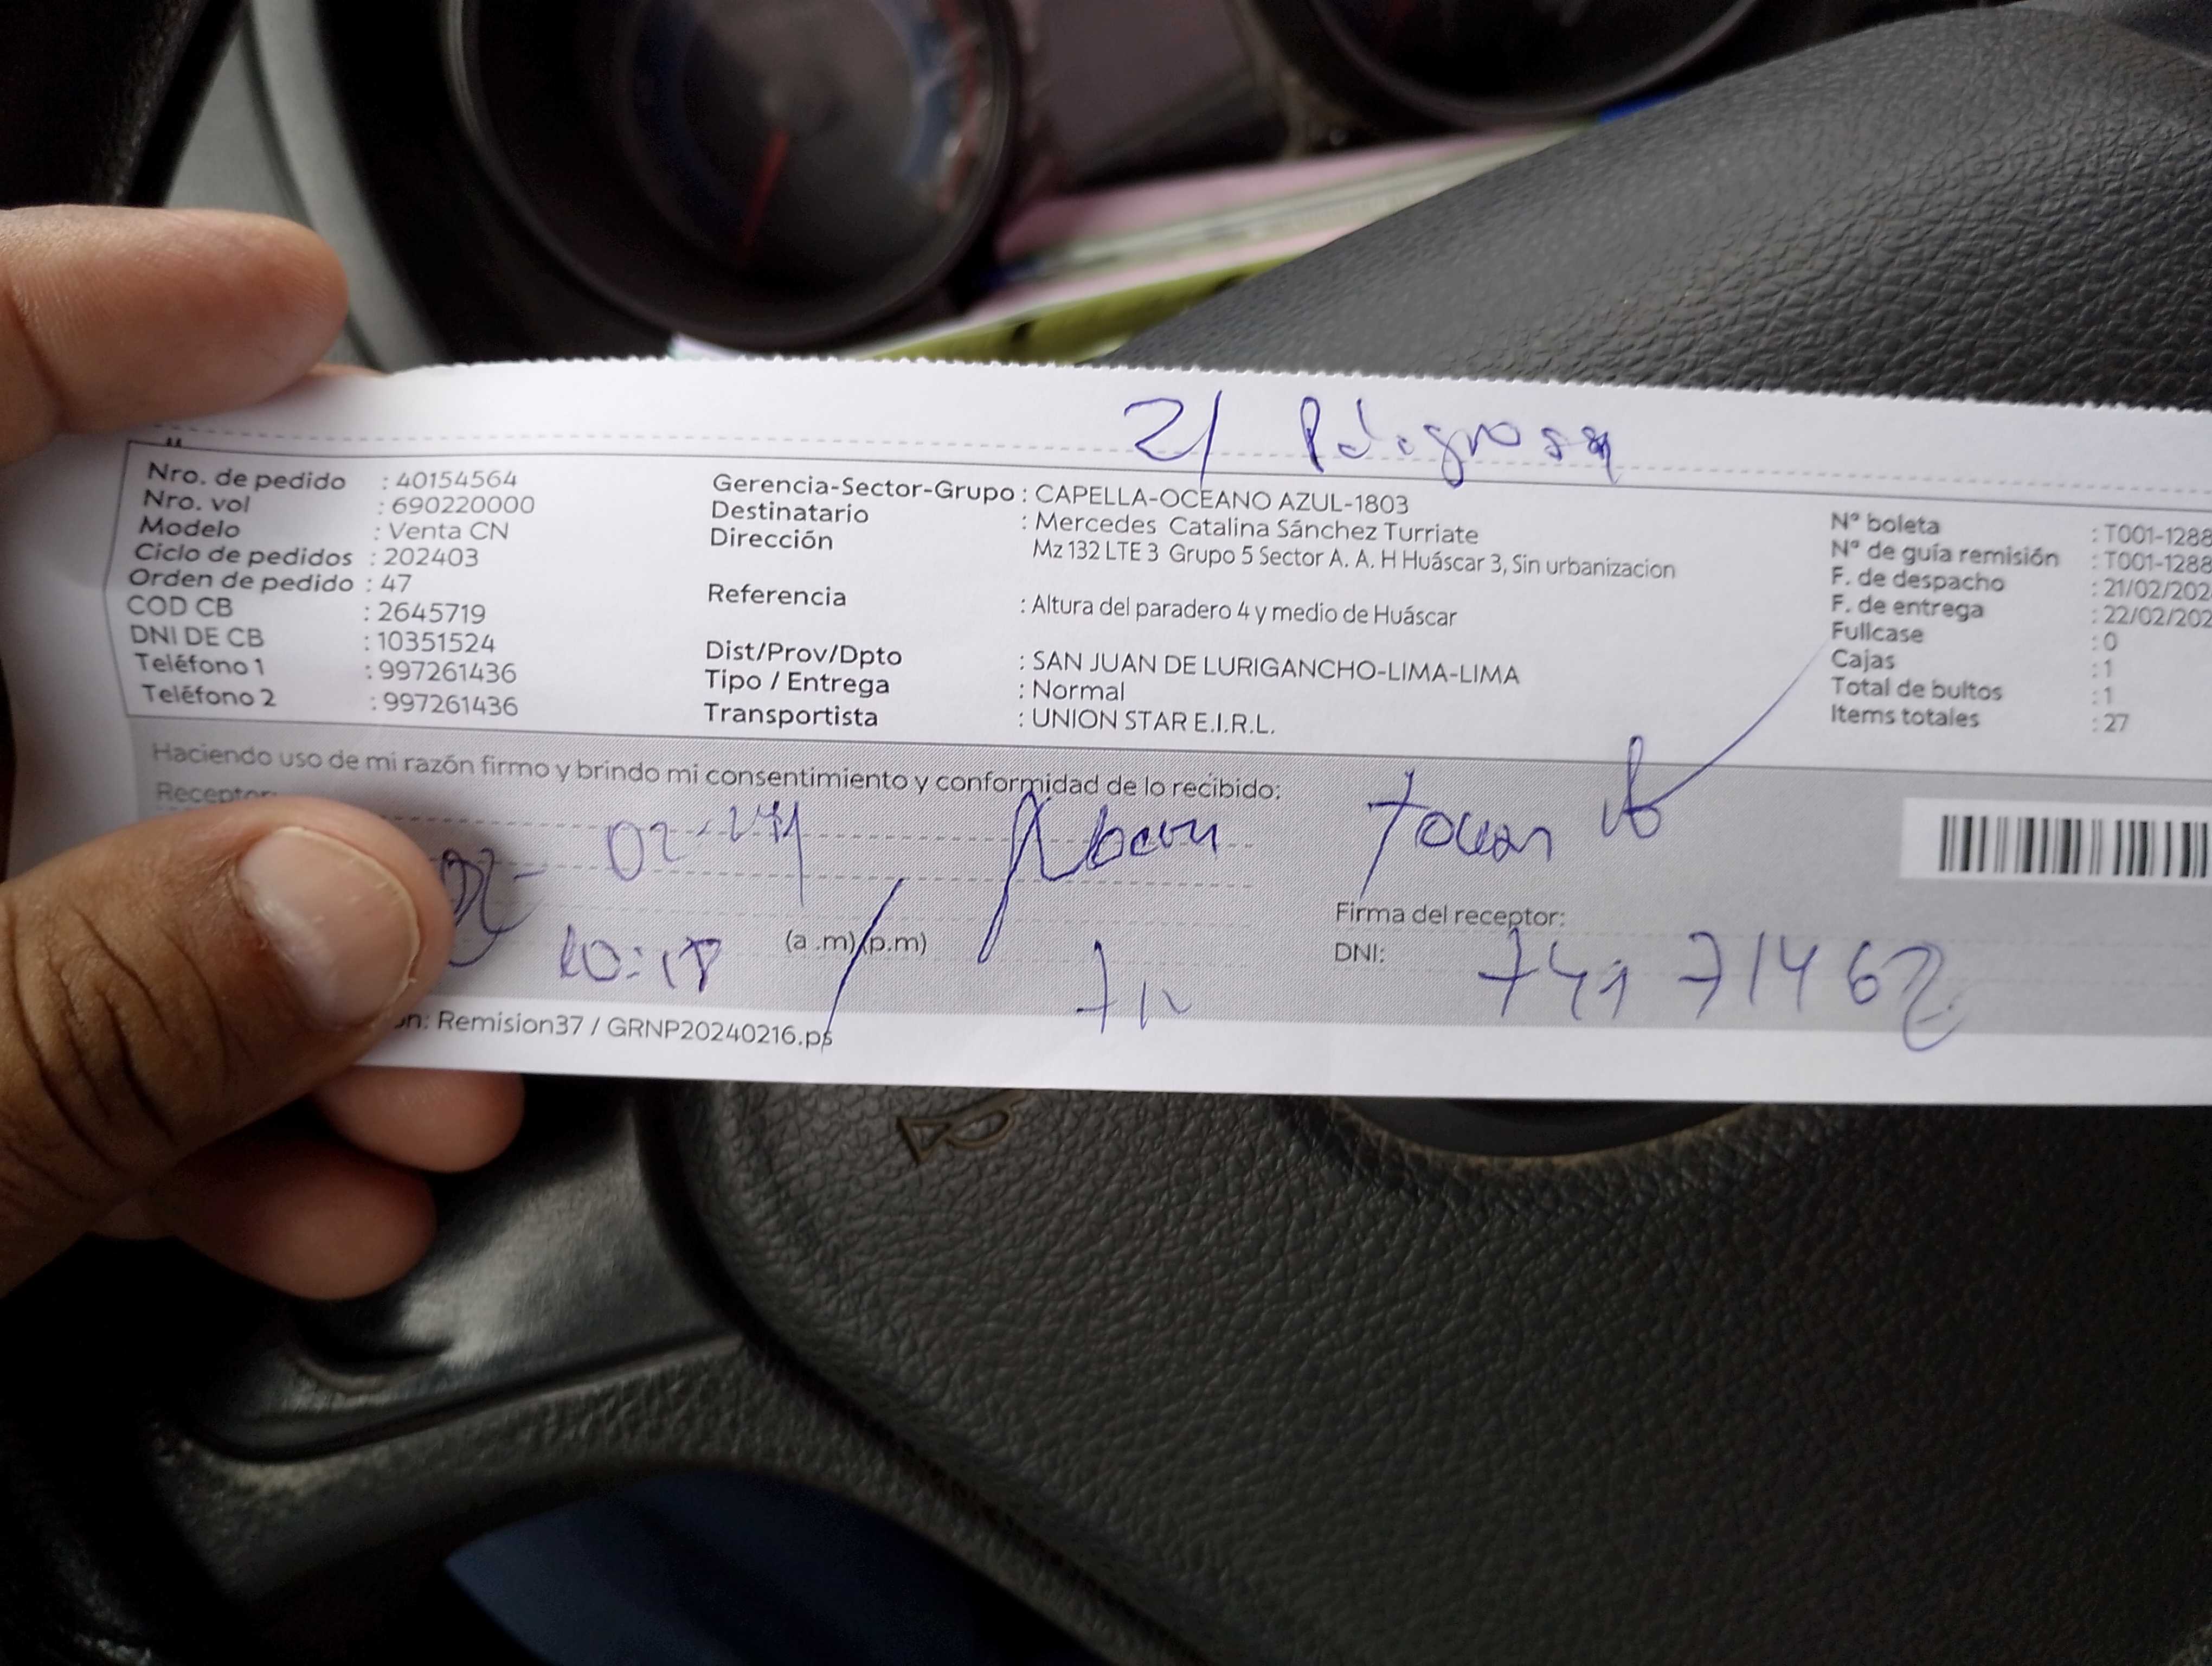 21 Peligrosa
Nro. de pedido : 40154564
Nro. vol : 690220000
Modelo : Venta CN
Ciclo de pedidos : 202403
Orden de pedido : 47
COD CB : 2645719
DNI DE CB : 10351524
Teléfono 1 : 997261436
Teléfono 2 : 997261436
Gerencia-Sector-Grupo : CAPELLA-OCEANO AZUL-1803
Destinatario : Mercedes Catalina Sánchez Turriate
Dirección Mz 132 LTE 3 Grupo 5 Sector A. A. H Huáscar 3, Sin urbanizacion
Referencia : Altura del paradero 4 y medio de Huáscar
Dist/Prov/Dpto : SAN JUAN DE LURIGANCHO-LIMA-LIMA
Tipo / Entrega : Normal
Transportista : UNION STAR E.I.R.L.
N° boleta : T001-1288
N° de guía remisión : T001-1288
F. de despacho : 21/02/202
F. de entrega : 22/02/202
Fullcase : 0
Cajas : 1
Total de bultos : 1
Items totales : 27
Haciendo uso de mi razón firmo y brindo mi consentimiento y conformidad de lo recibido:
Receptor:
02-
Firma del receptor:
10:18 (a .m) (p.m)
DNI: 74171462
ón: Remision37 / GRNP20240216.ps